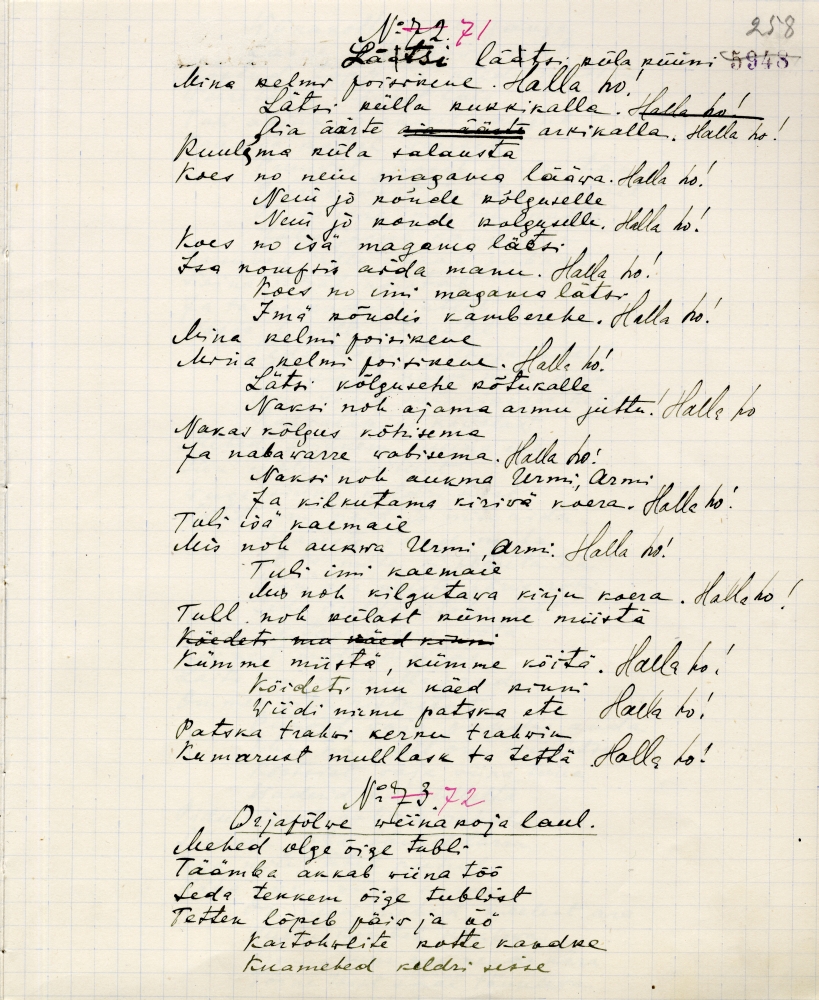 258
No 72. 71
Läätsi läätsi küla püüni 5948
Mina kelmi poisikene. Halla ho!
Lätsi külla kukkikalla. Halla ho!
Aia äärte aia äärte arkikalla. Halla ho!
Kuulõma küla salausta
Koes no neiu magama lääwa. Halla ho!
Neiu jo kõnde kõlguselle
Neiu jo konde kolguselle. Halla ho!
Koes no isä magama läätsi
Isa kompsis aida manu. Halla ho!
Koes no imi magama lätsi
Imä kõndis kamberehe. Halla ho!
Mina kelmi poisikene
Miina kelmi poisikene. Halla ho!
Lätsi kõlgusehe kõtukalle
Naksi noh ajama armu juttu! Halla ho
Nakas kõlgus kõhisema
Ja nabawarre wabisema. Halla ho!
Naksi noh aukma Urmi, Armi
Ja kilkutama kiriwä koera. Halla ho!
Tuli isä kaemaie
Mis noh aukwa Urmi, Armi. Halla ho!
Tuli imi kaemaie
Mis noh kilgutawa kirju koera. Halla ho!
Tull noh külast kümme miistä
Köedeti mu käed kinni
Kümme miistä, kümme köitä. Halla ho!
Köideti mu käed kinni
Wiidi minu patska ete Halla ho!
Patska trahwi kerku trahwin
Kumarust mull lask ta tettä. Halla ho!
No 73. 72
Orjapõlwe wiinakoja laul.
Mehed olge õige tubli
Täämba akkab wiina töö
Seda tekkem õige tublist
Tetten lõpeb päiw ja üö
Kartohwlite kotte kandke
Kuamehed keldri sisse